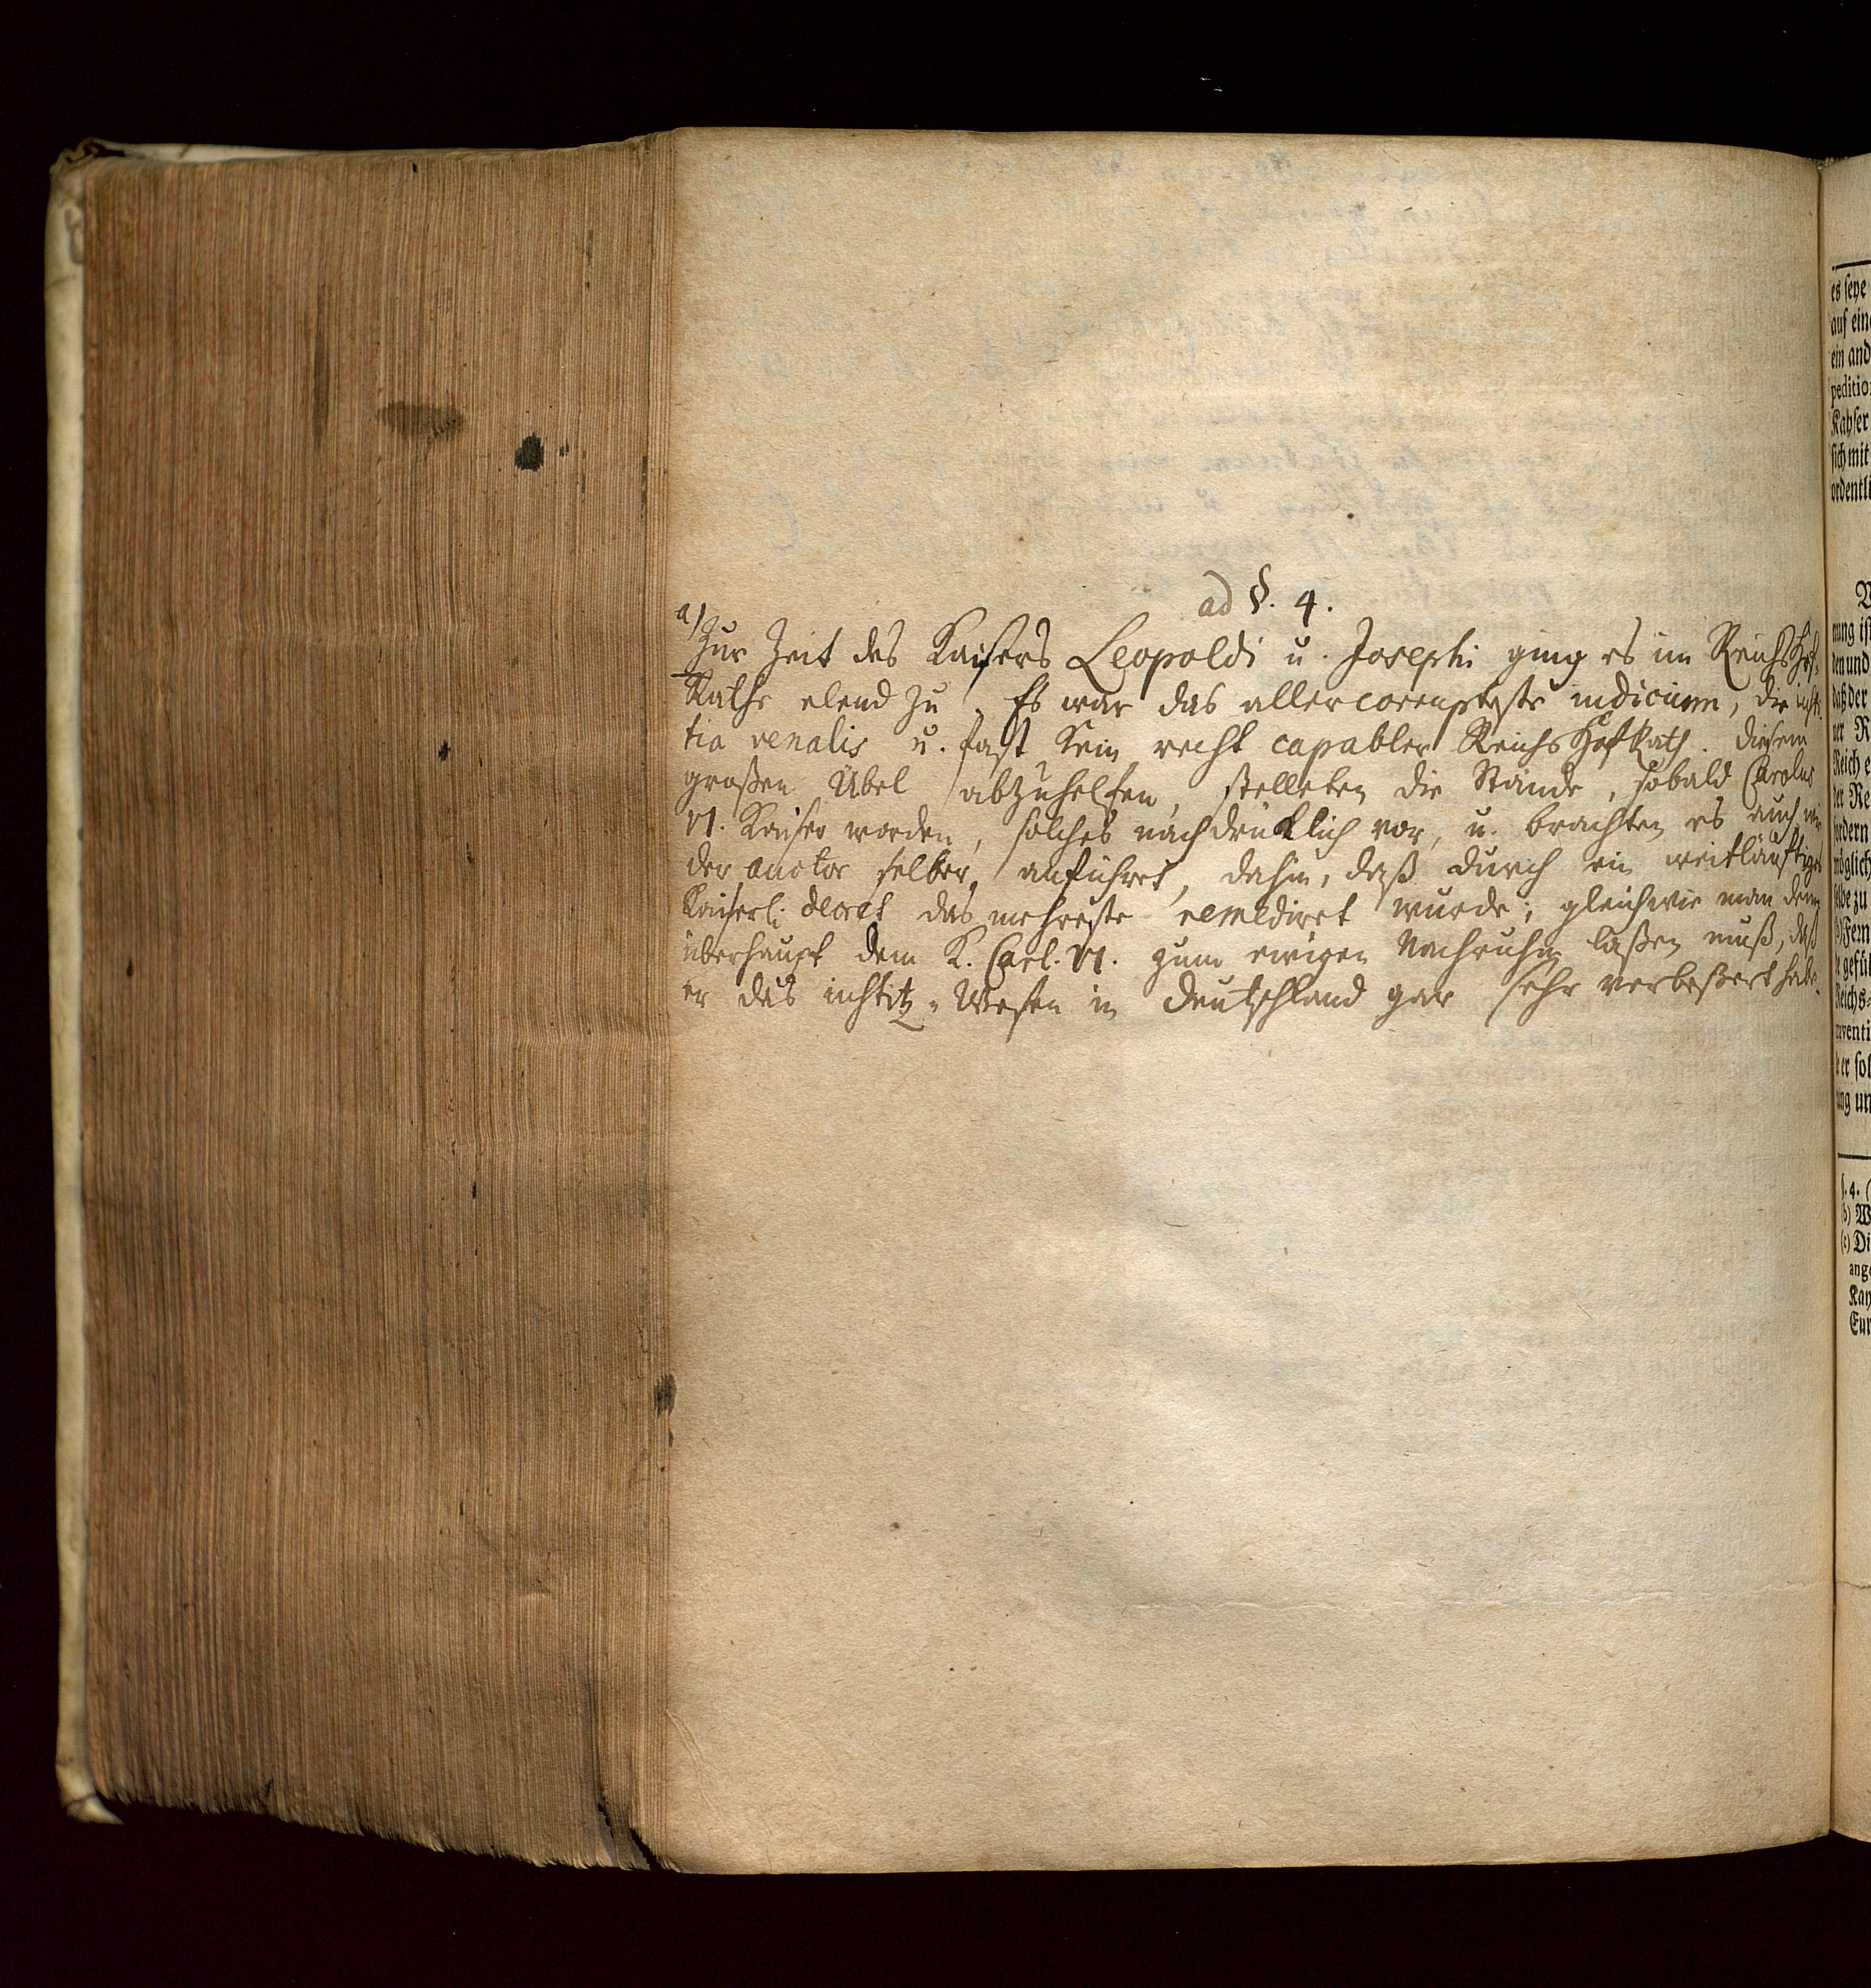 ad §. 4.
a) Zur Zeit des Kaisers Leopoldi u. Josephi ging es im ReichsHof-
Rathe elend zu. Es war das allercorrupteste iudicium, die iusti-
tia venalis u. fast kein recht capabler ReichsHofRath. Diesem
großen Übel abzuhelfen, stelleten die Stände, sobald Carolus
VI. Kaiser worden, solches nachdrücklich vor, u. brachten es auch, wie
der auctor selber anführet, dahin, daß durch ein weitläuftiges
Kaiserl. decret das mehreste remediret wurde; gleichwie man denn
überhaupt dem K. Carl. VI. zum ewigen Nachruhm laßen muß, daß
er das iustitz-Wesen in Deutschland gar sehr verbeßert habe.
es seye
auf ein
ein and
peditio
Kayser
sich mit
ordentli
nung ist
den und
daß der
Reich e
der Re
ordern
möglich
selbe zu
Fern
gefü
Reichs-
eventi
er sol
ung un
§. 4.
(b) W
(c) Di
ang
Kay
Eur